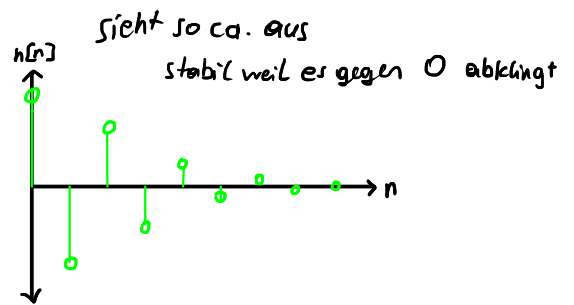 sieht so ca. aus
h[n]
stabil weil es gegen 0 abklingt
n